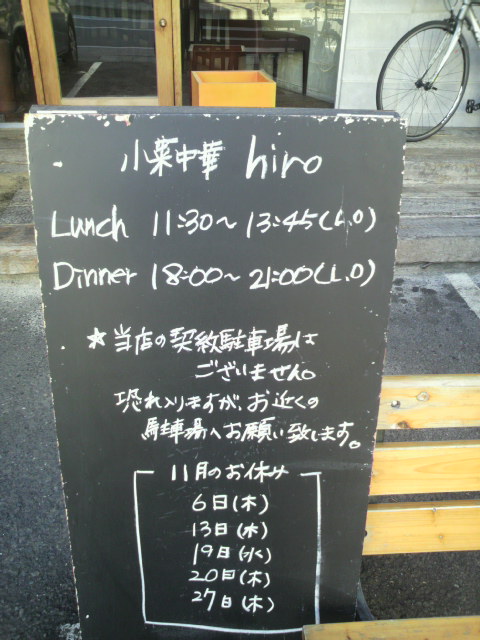 小菜中華 hiro
Lunch 11:30〜13:45(L.O)
Dinner 18:00〜21:00(L.O)
★当店の契約駐車場は
ございません。
恐れ入りますが、お近くの
駐車場へお願い致します。
11月のお休み
6日(木)
13日(木)
19日(水)
20日(木)
27日(木)